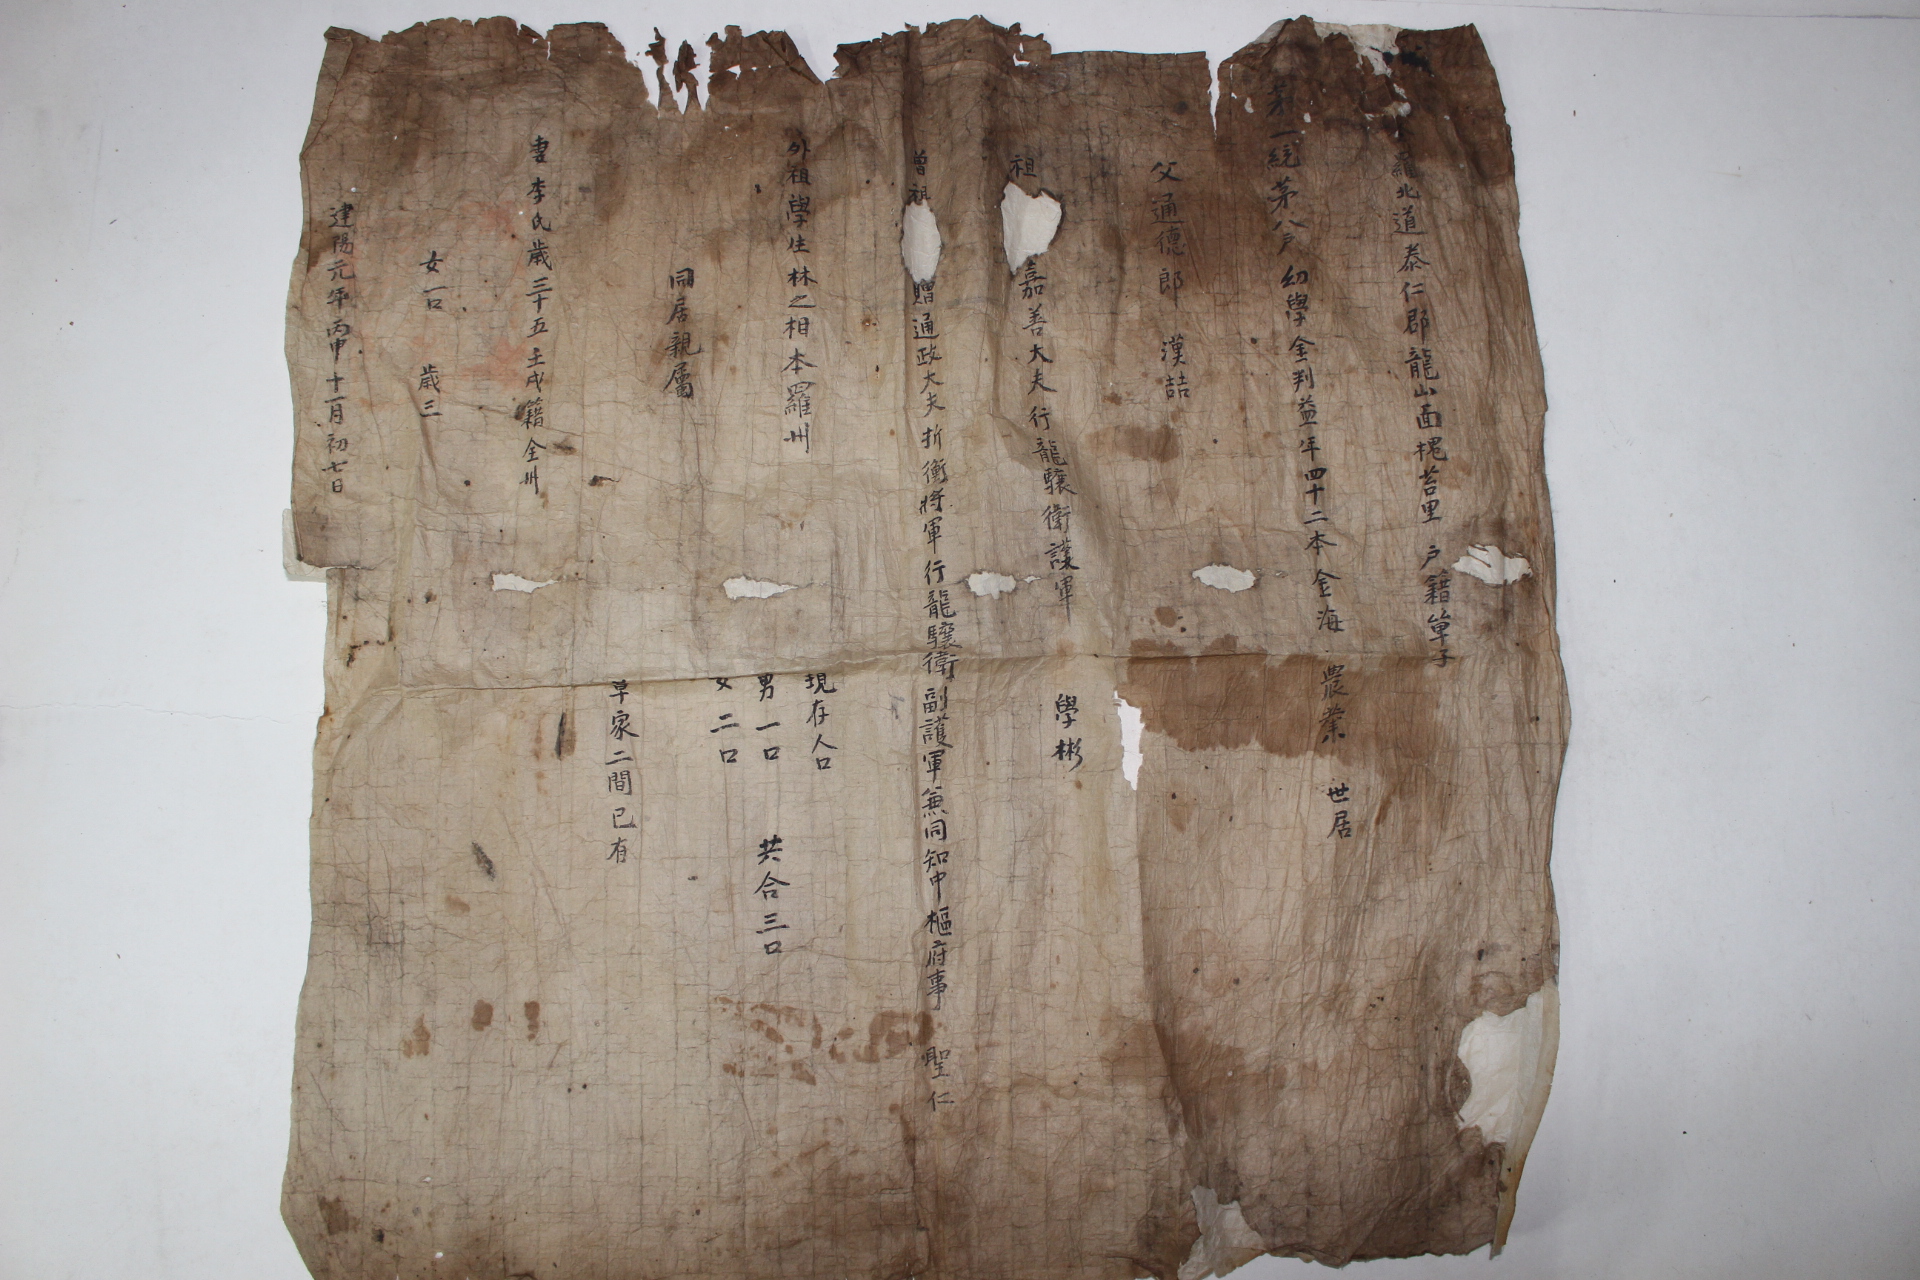 羅北道泰仁郡龍山面槐苔里 戶籍單子
茅一統茅八戶 幼學金判益年四十二本金海 農業 世居
父通德郎 漢喆
祖 嘉善大夫行龍驤衛護軍 學彬
曾祖 贈通政大夫折衝將軍行龍驤衛副護軍兼同知中樞府事 聖仁
外祖學生林之相本羅州
現存人口
男一口 共合三口
女二口
同居親屬
草家二間已有
妻李氏歲三十五壬戌籍全州
女一口 歲三
建陽元年丙申十一月初七日